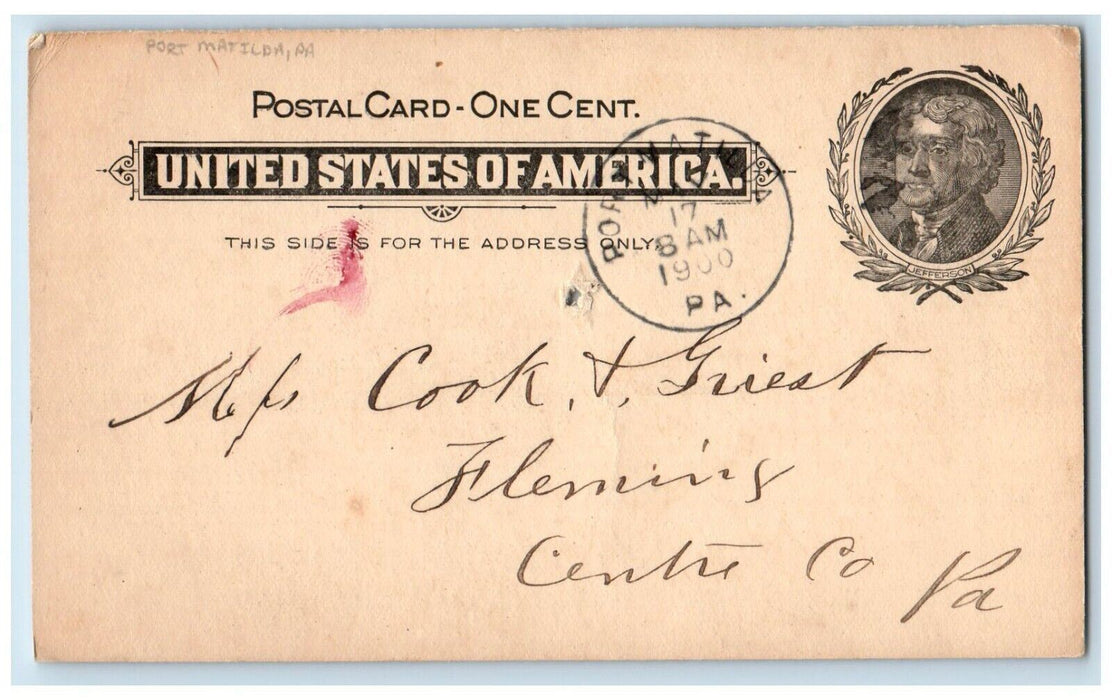 PORT MATILDA, PA
POSTAL CARD - ONE CENT.
UNITED STATES OF AMERICA.
THIS SIDE IS FOR THE ADDRESS ONLY.
PORT MATILDA
17
8 AM
1900
PA.
JEFFERSON
Cook, & Griest
Fleming
Centre Co Pa